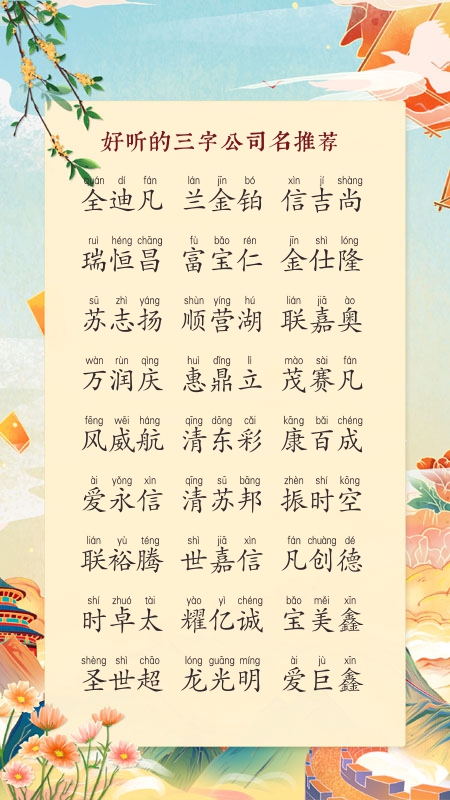 好听的三字公司名推荐
quán dí fán lán jīn bó xìn jí shàng
全迪凡 兰金铂 信吉尚
ruì héng chāng fù bǎo rén jīn shì lóng
瑞恒昌 富宝仁 金仕隆
sū zhì yáng shùn yíng hú lián jiā ào
苏志扬 顺营湖 联嘉奥
wàn rùn qìng huì dǐng lì mào sài fán
万润庆 惠鼎立 茂赛凡
fēng wēi háng qīng dōng cǎi kāng bǎi chéng
风威航 清东彩 康百成
ài yǒng xìn qīng sū bāng zhèn shí kōng
爱永信 清苏邦 振时空
lián yù téng shì jiā xìn fán chuàng dé
联裕腾 世嘉信 凡创德
shí zhuó tài yào yì chéng bǎo měi xīn
时卓太 耀亿诚 宝美鑫
shèng shì chāo lóng guāng míng ài jù xīn
圣世超 龙光明 爱巨鑫